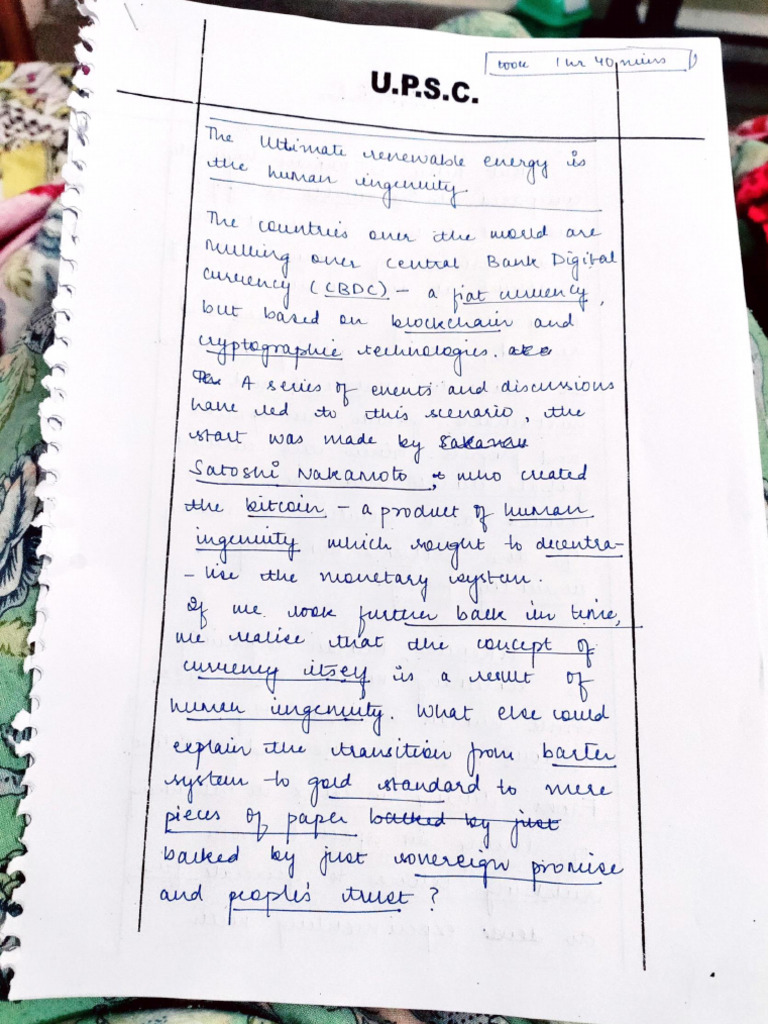 took 1 hr 40 mins
U.P.S.C.
The Ultimate renewable energy is
the human ingenuity
The countries over the world are
Mulling over Central Bank Digital
Currency (CBDC) - a fiat currency,
but based on blockchain and
cryptographic technologies.
A series of events and discussions
have led to this scenario, the
start was made by
Satoshi Nakamoto, who created
the bitcoin - a product of human
ingenuity which sought to decentra-
-lise the monetary system.
If we look further back in time,
we realise that the concept of
currency itself is a result of
human ingenuity. What else could
explain the transition from barter
system to gold standard to mere
pieces of paper backed by just
backed by just sovereign promise
and people's trust?